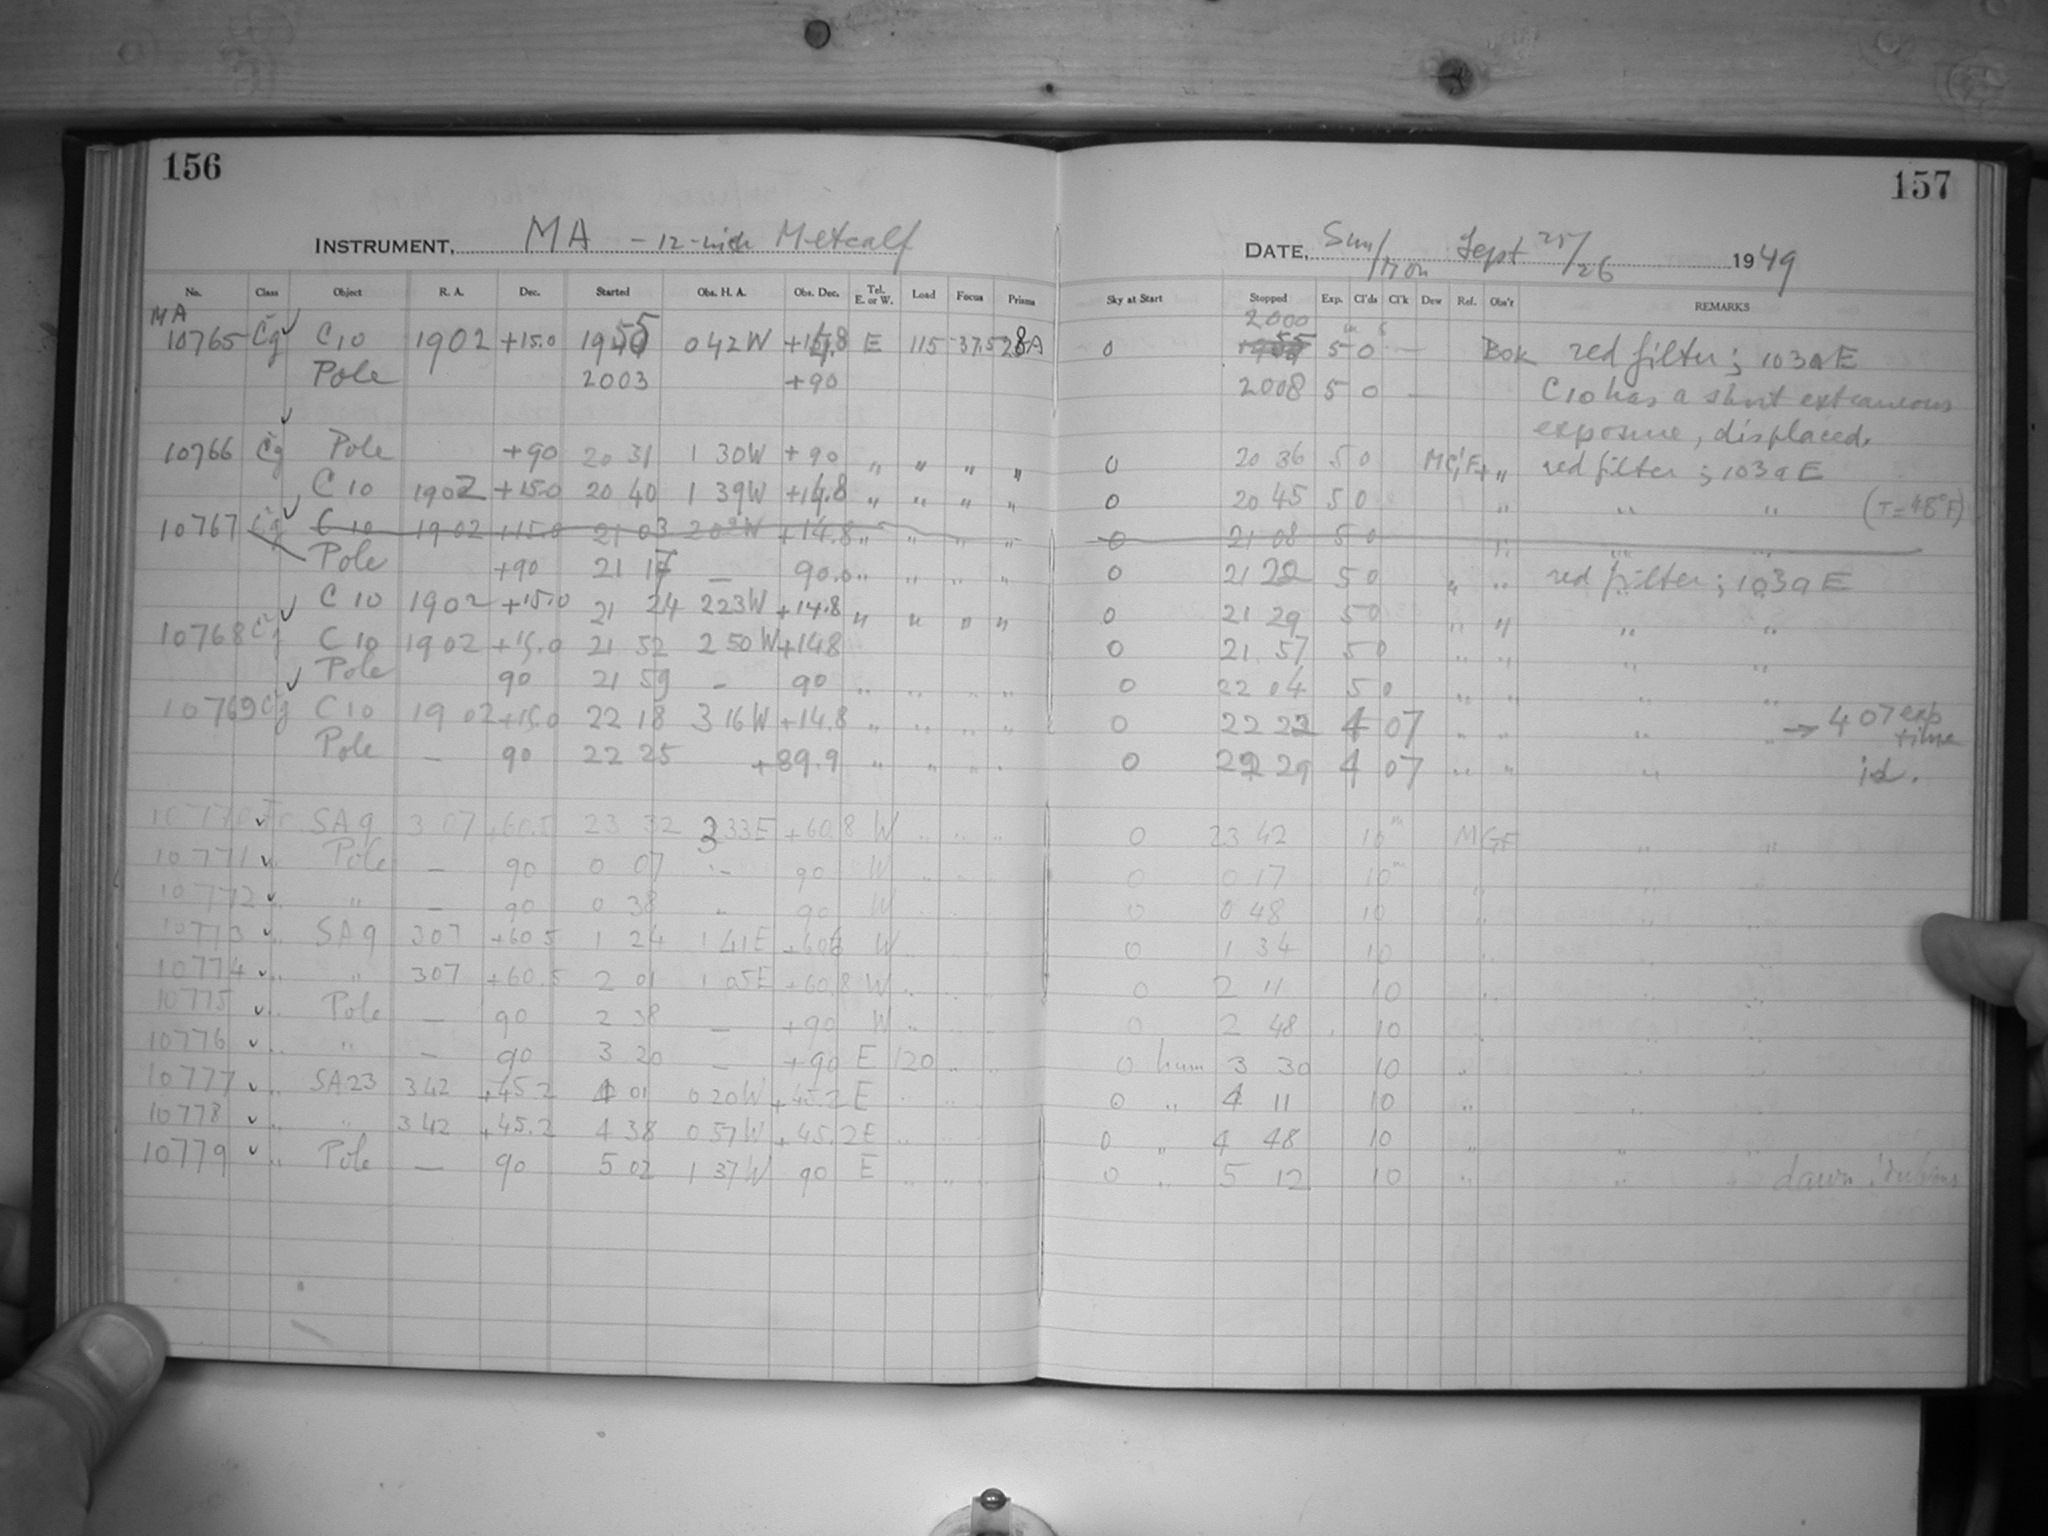 156
157
INSTRUMENT, MA - 12-inch Metcalf
DATE, Sun/Mon Sept 25/26 1949
No. Class Object R. A. Dec. Started Obs. H. A. Obs. Dec. Tel. E. or W. Load Focus Prisms Sky at Start Stopped Exp. Cl'ds Cl'k Dew Ref. Obs'r REMARKS
MA 2000
10765 Cg C10 1902 +15.0 1955 0 42 W +14.8 E 115 37.5 28A 0 5 0 — Bok red filter; 103aE
Pole 2003 +90 2008 5 0 — C10 has a short extraneous
exposure, displaced.
10766 Cg Pole +90 20 31 1 30W +90 " " " " 0 20 36 5 0 " red filter; 103aE
C10 1902 +15.0 20 40 1 39W +14.8 " " " " 0 20 45 5 0 " " " (T=48°F)
10767 Cg C10 1902 +15.0 21 03 2 02W +14.8 " " " " 0 21 08 5 0 " " "
Pole +90 21 17 — 90.0 " " " " 0 21 22 5 0 " " red filter; 103aE
C10 1902 +15.0 21 24 2 23W +14.8 " " " " 0 21 29 5 0 " " " "
10768 Cg C10 1902 +15.0 21 52 2 50W +14.8 0 21 57 5 0 " " " "
Pole 90 21 59 - 90 " " " " 0 22 04 5 0 " " " "
10769 Cg C10 1902 +15.0 22 18 3 16W +14.8 " " " " 0 22 22 4 07 " " " " → 4 07 exp time
Pole — 90 22 25 +89.9 " " " " 0 22 29 4 07 " " " id.
10770 SA9 3 07 +60.5 23 32 3 33E +60.8 W " " " 0 23 42 10m MGF " "
10771 " Pole — 90 0 07 - 90 W " " " 0 0 17 10m " " "
10772 " " — 90 0 38 " 90 W " " 0 0 48 10 " " "
10773 " SA9 307 +60.5 1 24 1 41E W 0 1 34 10 " " "
10774 " " 307 +60.5 2 01 1 05E +60.8 W " " " 0 2 11 10 " " "
10775 " Pole — 90 2 38 — +90 W " " " 0 2 48 10 " " "
10776 " " — 90 3 20 — +90 E 120 " " 0 hum 3 30 10 " " "
10777 " SA23 342 +45.2 4 01 0 20W +45.2 E " " " 0 " 4 11 10 " " "
10778 " " 342 +45.2 4 38 0 57W +45.2 E " " " 0 " 4 48 10 " " "
10779 " Pole — 90 5 02 1 37W 90 E " " " 0 " 5 12 10 " " dawn